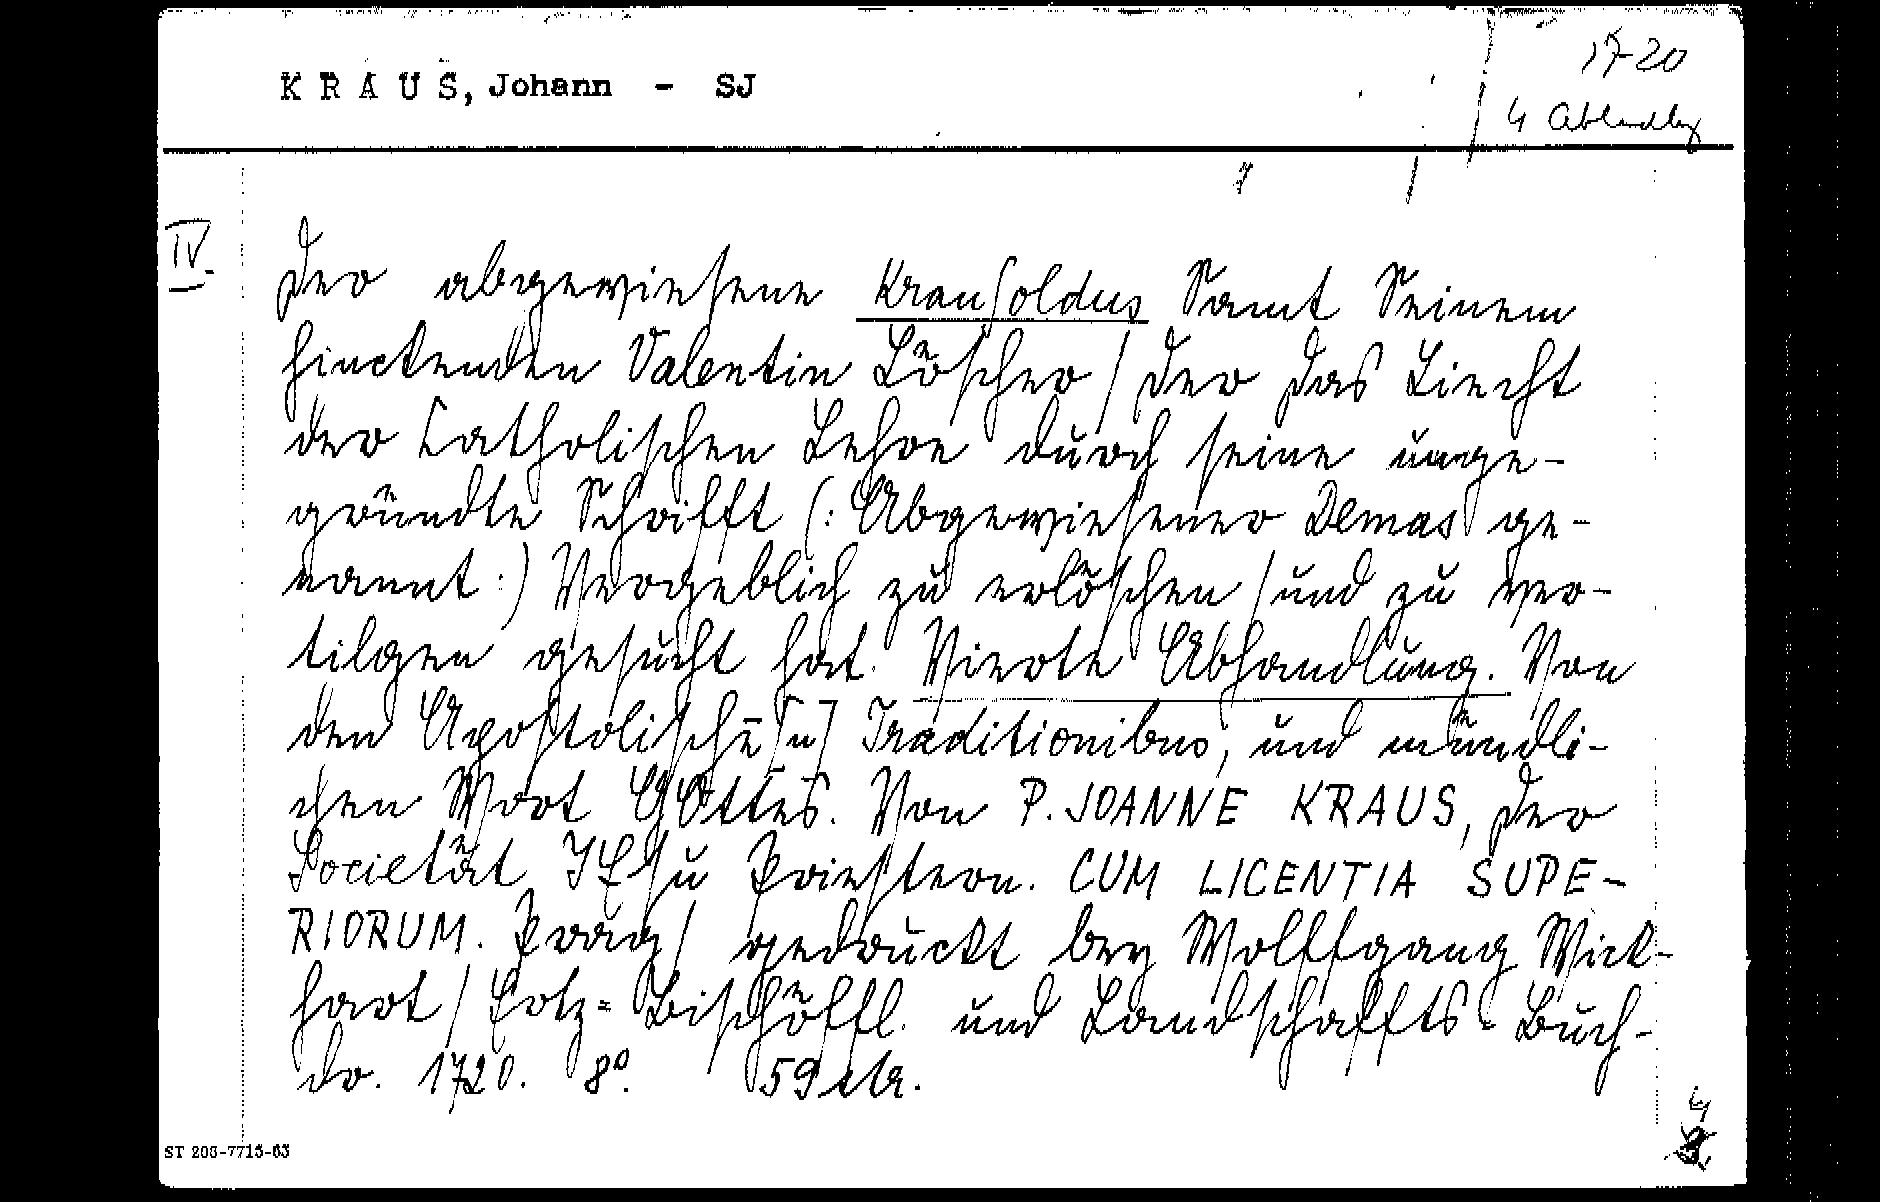 KRAUS, Johann - SJ
1720
4 Abhndlg
IV.
Der abgewiesene Krausoldus Samt Seinem
hinckenden Valentin Löscher / der das Liecht
der Catholischen Lehre durch seine unge-
gründte Schrifft (: Abgewiesener Demas ge-
nannt :) Vergeblich zu erlöschen / und zu ver-
tilgen gesucht hat. Vierte Abhandlung. Von
den Apostolischē [n] Traditionibus, und mündli-
chen Wort GOttes. Von P. JOANNE KRAUS, der
Societät JEsu Priestern. CUM LICENTIA SUPE-
RIORUM. Prag / gedruckt bey Wolffgang Wick-
hart / Ertz= Bischöffl. und Landschaffts= Buch-
dr. 1720. 8°. 59 str.
4
ST 205-7715-63